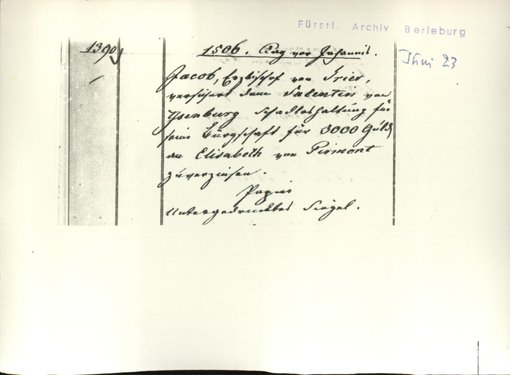 Fürstl. Archiv Berleburg
1390
1506. Tag vor Johannis.
Juni 23
Jacob, Erzbischof von Trier,
versichert dem Salentin von
Ysenburg Schadloshaltung für
sein Bürgschaft für 3000 Guld.
an Elisabeth von Pirmont
zu
Papier
Untergedrucktes Siegel.